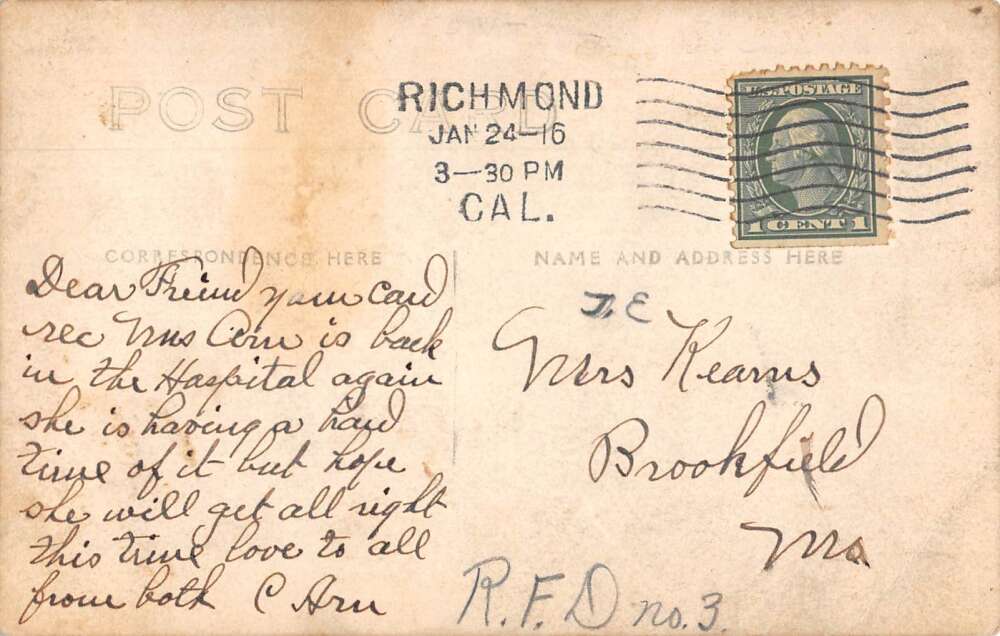 POST CARD
RICHMOND
JAN 24-16
3-30 PM
CAL.
U.S. POSTAGE
1 CENT 1
CORRESPONDENCE HERE
NAME AND ADDRESS HERE
Dear Freind your card
rec Mrs Arn is back
in the Haspital again
she is having a hard
time of it but hope
she will get all right
this time love to all
from both C Arn
T. E
Mrs Kearns
Brookfield
Mo
R.F.D no. 3.